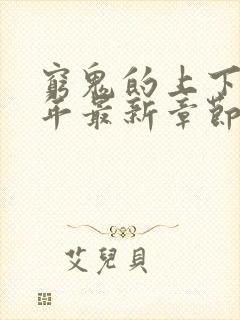 窮鬼的上下
年最新章節
艾兒貝